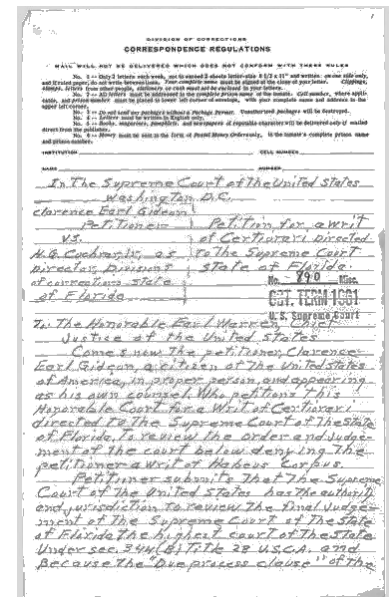 DIVISION OF CORRECTIONS
CORRESPONDENCE REGULATIONS
MAIL WILL NOT BE DELIVERED WHICH DOES NOT CONFORM WITH THESE RULES
No. 1 -- Only 2 letters each week, not to exceed 2 sheets letter-size 8 1/2 x 11" and written on one side only,
and if ruled paper, do not write between lines. Your complete name must be signed at the close of your letter. Clippings,
stamps, letters from other people, stationery or cash must not be enclosed in your letters.
No. 2 -- All letters must be addressed in the complete prison name of the inmate. Cell number, where applicable,
and prison number must be placed in lower left corner of envelope, with your complete name and address in the
upper left corner.
No. 3 -- Do not send any packages without a Package Permit. Unauthorized packages will be destroyed.
No. 4 -- Letters must be written in English only.
No. 5 -- Books, magazines, pamphlets, and newspapers of reputable character will be delivered only if mailed
direct from the publisher.
No. 6 -- Money must be sent in the form of Postal Money Orders only, in the inmate's complete prison name
and prison number.
INSTITUTION CELL NUMBER
NAME NUMBER
In The Supreme Court of The United States
Washington D.C.
Clarence Earl Gideon
Petitioner Petition for a writ
vs. of Certiorari Directed
H.G. Cochran, Jr., as to The Supreme Court
Director, Division State of Florida.
of corrections state No. 890 Misc.
of Florida OCT. TERM 1961
U. S. Supreme Court
To: The Honorable Earl Warren, Chief
Justice of the United States
Comes now the petitioner, Clarence
Earl Gideon, a citizen of The United States
of America, in proper person, and appearing
as his own counsel. Who petitions this
Honorable Court for a Writ of Certiorari
directed to The Supreme Court of The State
of Florida, to review the order and Judge-
ment of the court below denying the
petitioner a writ of Habeus Corpus.
Petitioner submits That The Supreme
Court of The United States has the authority
and jurisdiction to review the final Judge-
ment of The Supreme Court of The State
of Florida the highest court of The State
Under sec. 344(B) Title 28 U.S.C.A. and
Because the "Due process clause" of the